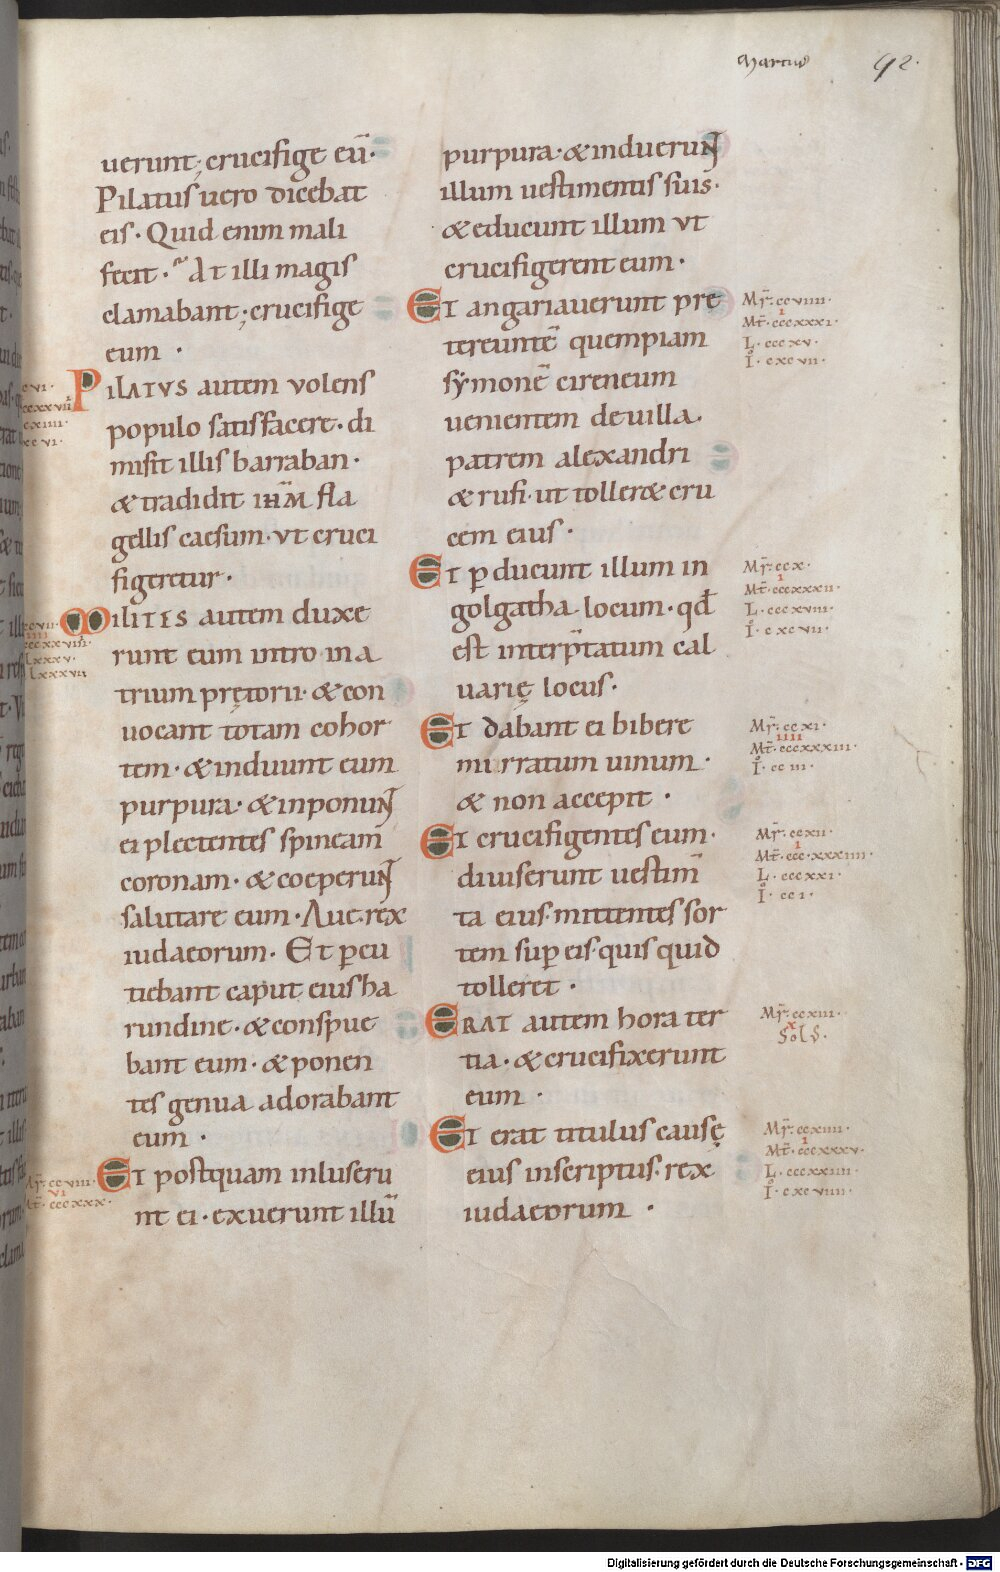 Marcus
92.
uerunt; crucifige eū·
Pilatus uero dicebat
eis· Quid enim mali
fecit· At illi magis
clamabant; crucifige
eum ·
PILATVS autem volens
populo satisfacere· di
misit illis barraban·
& tradidit ihm̄ fla
gellis caesum· vt cruci
figeretur·
MILITES autem duxe
runt eum intro in a
trium prętorii· & con
uocant totam cohor
tem· & induunt eum
purpura· & inponunt
ei plectentes spineam
coronam· & coeperunt
salutare eum· Aue rex
iudaeorum· Et ꝑcu
tiebant caput eius ha
rundine· & conspue
bant eum· & ponen
tes genua adorabant
eum ·
Et postquam inluseru
nt ei· exuerunt illū
Mr̄· ccviii·
vi
Mt̄· cccxxx·
purpura· & induerunt
illum uestimentis suis·
& educunt illum vt
crucifigerent eum·
Et angariauerunt pre
tereuntē quempiam
sẏmonē cireneum
uenientem de uilla·
patrem alexandri
& rufi· ut toller& cru
cem eius·
Et ꝑducunt illum in
golgatha locum· qđ
est interp̄tatum cal
uarię locus·
Et dabant ei bibere
mirratum uinum·
& non accepit ·
Et crucifigentes eum·
diuiserunt uestim̄
ta eius· mittentes sor
tem suꝑ eis· quis quid
tolleret ·
ERAT autem hora ter
tia· & crucifixerunt
eum ·
Et erat titulus causę
eius inscriptus· rex
iudaeorum ·
Mr̄· ccviiii·
i
Mt̄· cccxxxi·
L· cccxv·
I· cxcvii·
Mr̄· ccx·
i
Mt̄· cccxxxii·
L· cccxviii·
I· cxcvii·
Mr̄· ccxi·
iiii
Mt̄· cccxxxiii·
I· cciii·
Mr̄· ccxii·
i
Mt̄· ccc·xxxiiii·
L· cccxxi·
I· cci·
Mr̄· ccxiii·
x
Solus·
Mr̄· ccxiiii·
i
Mt̄· cccxxxv·
L· cccxxiiii·
I· cxcviiii·
Digitalisierung gefördert durch die Deutsche Forschungsgemeinschaft - DFG